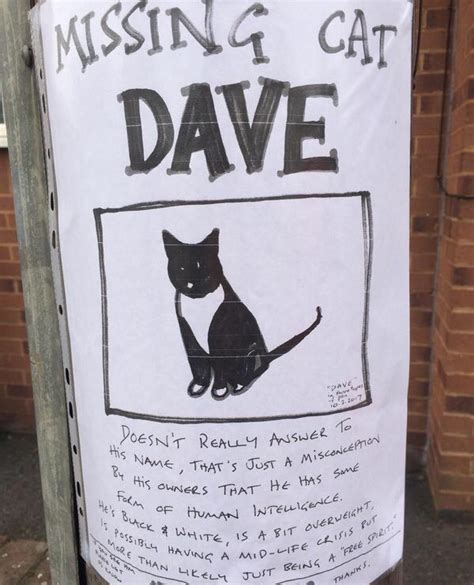 MISSING CAT
DAVE
"DAVE"
10.2.2017
DOESN'T REALLY ANSWER TO
HIS NAME, THAT'S JUST A MISCONCEPTION
BY HIS OWNERS THAT HE HAS SOME
FORM OF HUMAN INTELLIGENCE.
HE'S BLACK & WHITE, IS A BIT OVERWEIGHT,
IS POSSIBLY HAVING A MID-LIFE CRISIS BUT
MORE THAN LIKELY JUST BEING A "FREE SPIRIT."
THANKS.